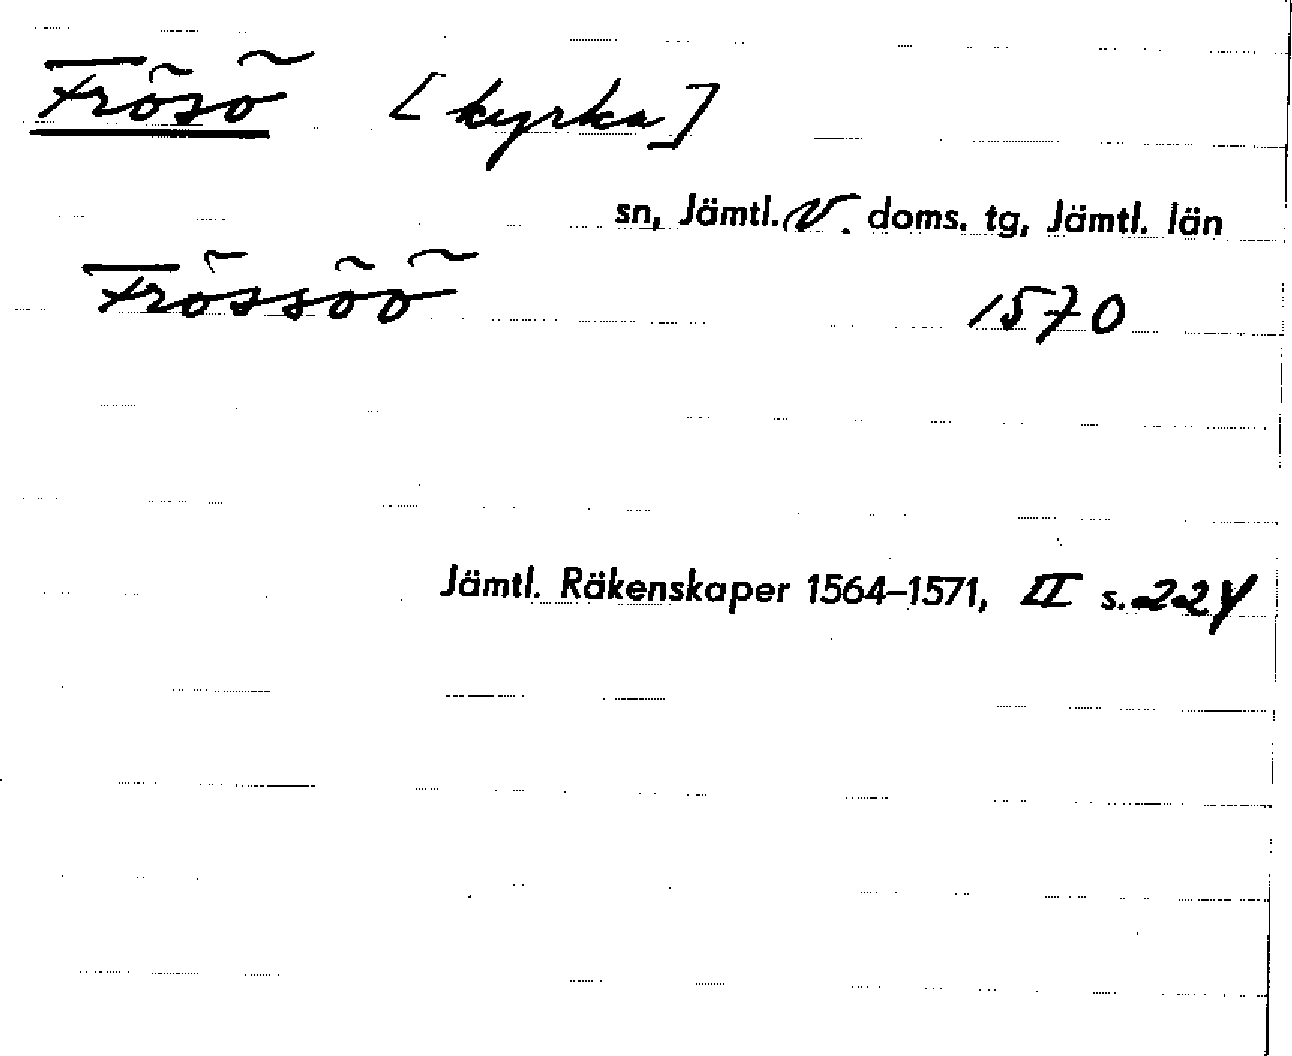 Frösö [kyrka]
sn, Jämtl. V. doms. tg, Jämtl. län
Frössöö 1570
Jämtl. Räkenskaper 1564–1571, II s. 224